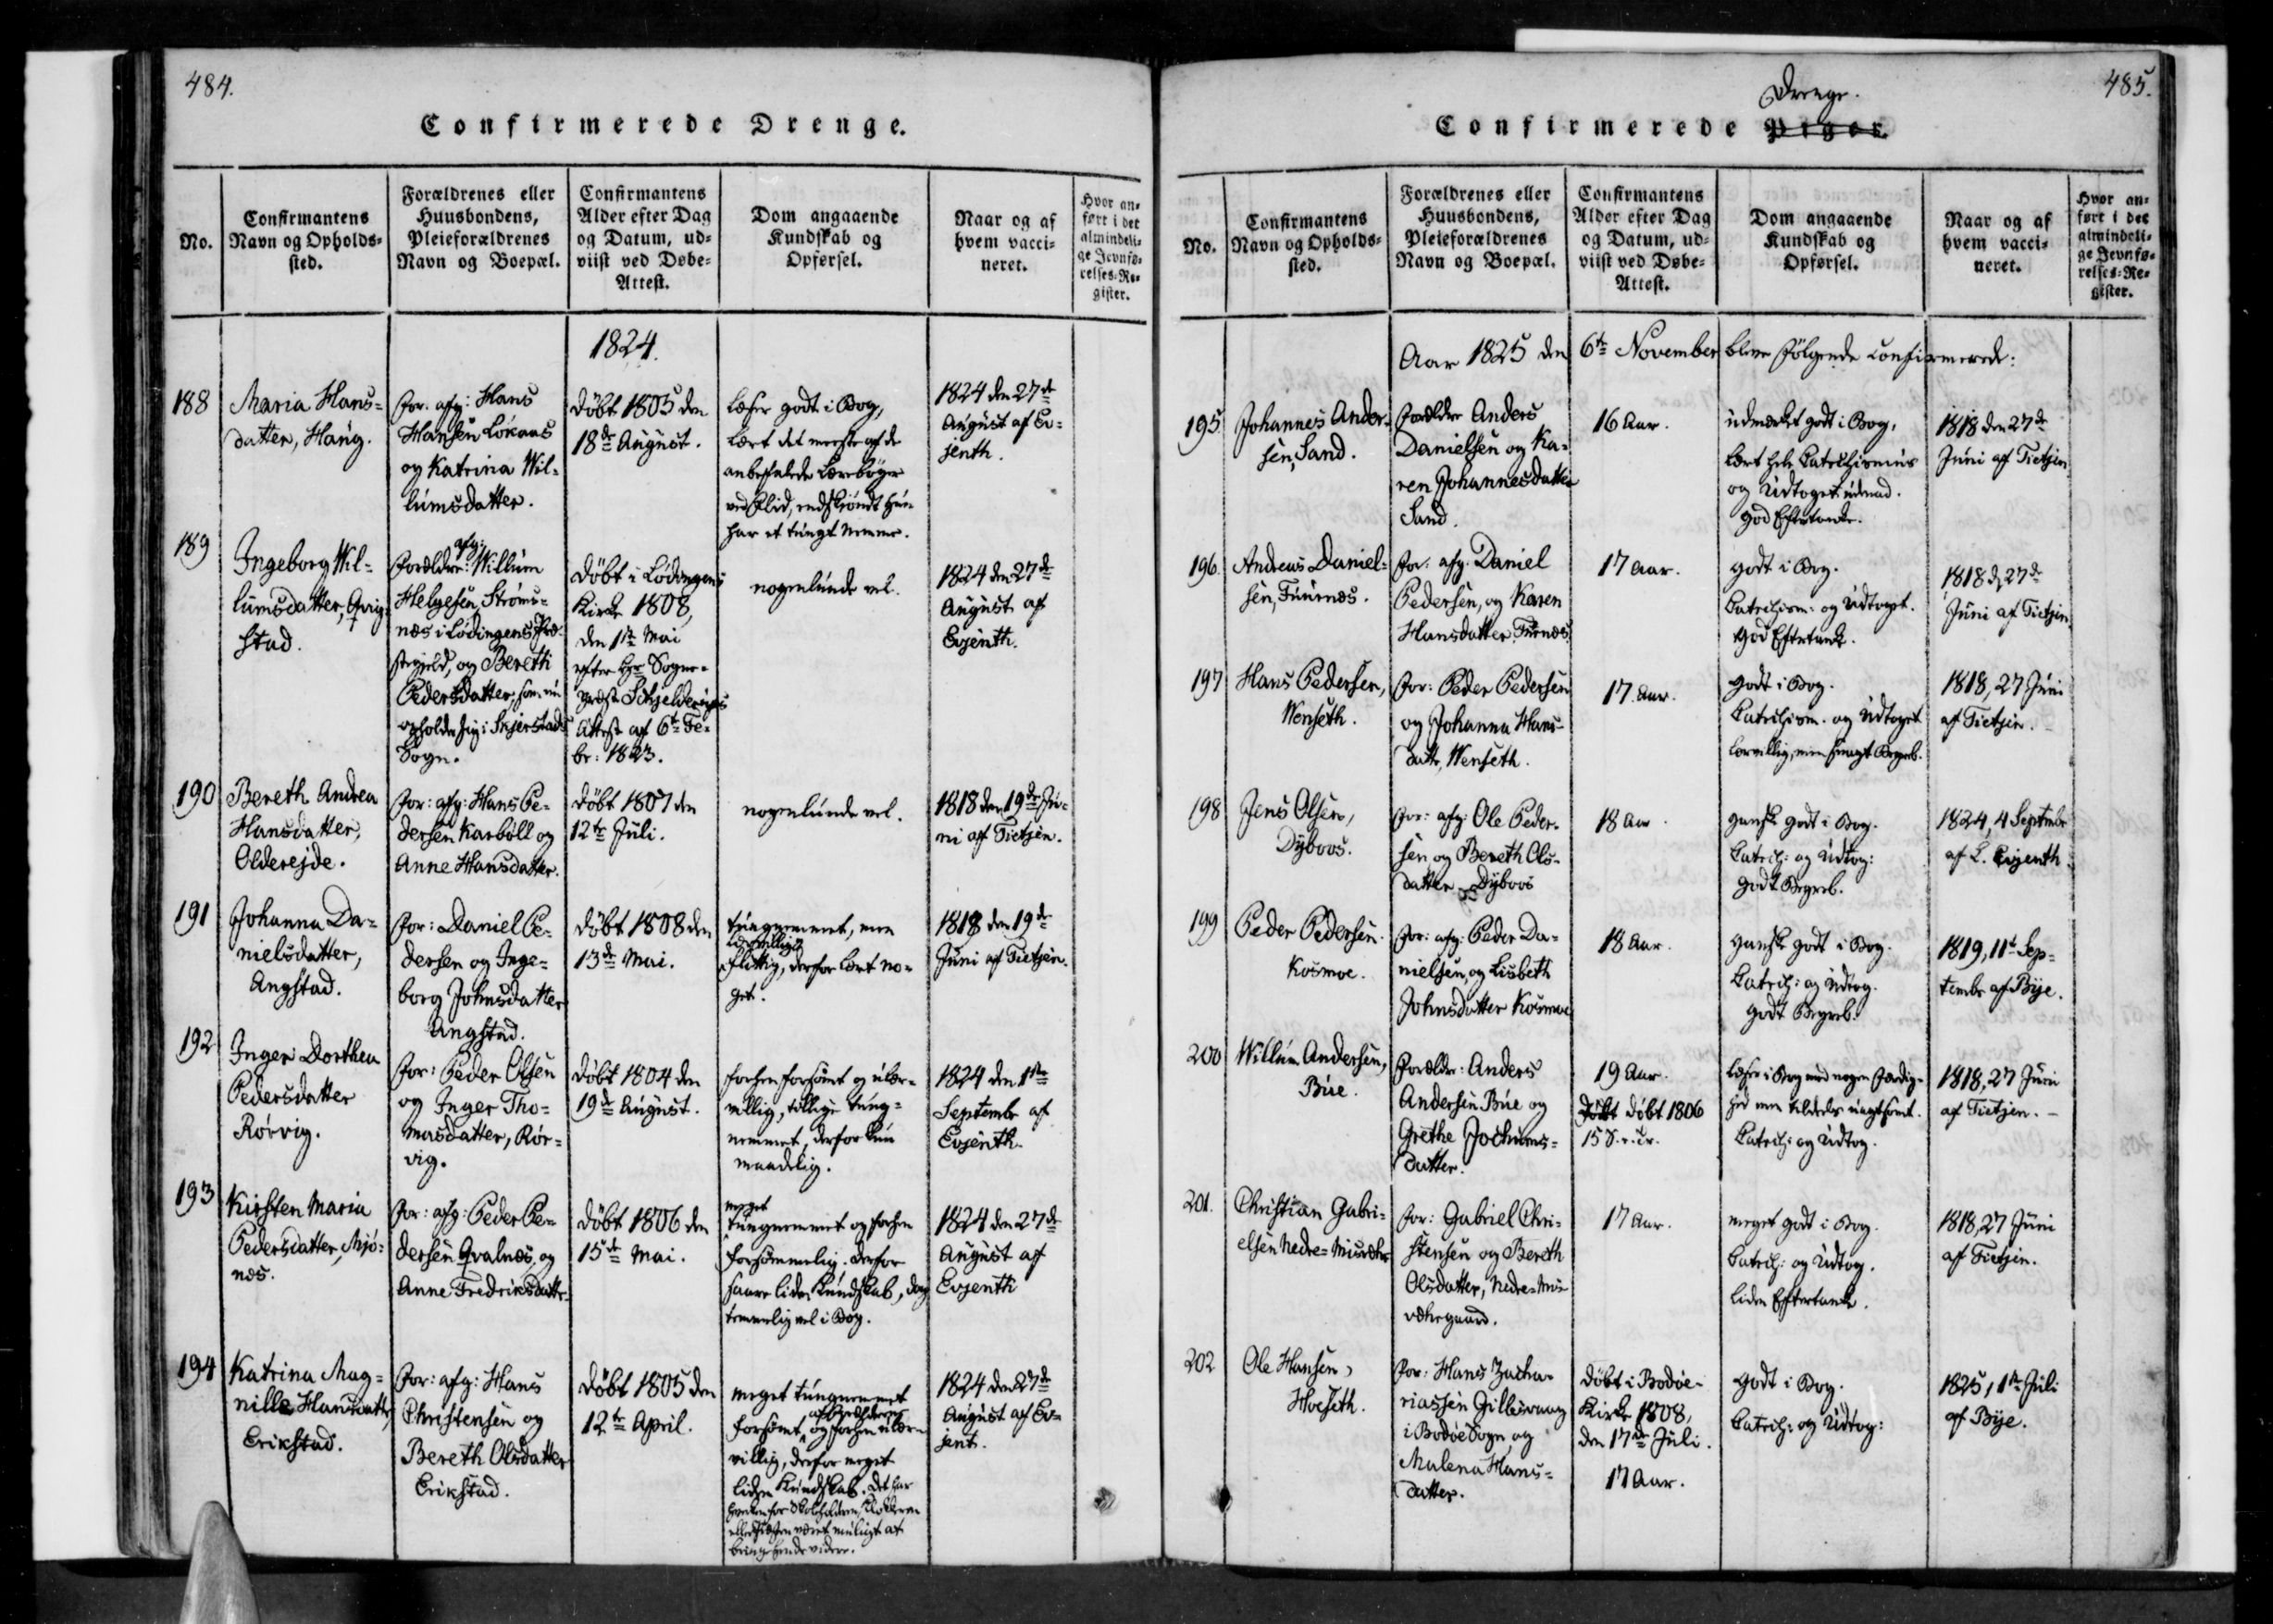 484.
Confirmerede Drenge.
No.
Confirmantens
Navn og Opholds-
sted.
Forældrenes eller
Huusbondens,
Pleieforældrenes
Navn og Boepæl.
Confirmantens
Alder efter Dag
og Datum, ud-
viist ved Døbe-
Attest.
Dom angaaende
Kundskab og
Opførsel.
Naar og af
hvem vacci-
neret.
Hvor an-
ført i det
almindeli-
ge Jevnfø-
relses-Re-
gister.
1824.
188
Maria Hans-
datter, Haug.
For. afg: Hans
Hansen Løkaas
og Katrina Wil-
lumsdatter.
døbt 1805 den
18de August.
Læser godt i Bog,
lært det meeste af de
anbefalede Lærebøger
ved Flid, endskiøndt hun
har et tungt Nemme.
1824 den 27de
August af Ev-
jenth.
189
Ingeborg Wil-
lumsdatter, Qvig-
stad.
afg:
Forældre: Willum
Helgesen Strøms-
næs i Lødingens Præ-
stegjeld, og Bereth
Pedersdatter, som nu
opholder sig i Skjerstads
Sogn.
døbt i Lødingens
Kirke 1808,
den 1ste Mai
efter Hr Sogne-
præst Schjelderups
Attest af 6te Fe-
br: 1823.
nogenlunde vel.
1824 den 27de
August af
Evjenth.
190
Bereth Andrea
Hansdatter,
Oldereide.
For: afg: Hans Pe-
dersen Karbøll og
Anne Hansdatter.
døbt 1807 den
12te Juli.
nogenlunde vel.
1818 den 19de Ju-
ni af Tietjen.
191
Johanna Da-
nielsdatter,
Angstad.
For: Daniel Pe-
dersen og Inge-
borg Johnsdatter
Angstad.
døbt 1808 den
13de Mai.
tungnemmet, men
lærvillig
flittig, derfor lært no-
get.
1818 den 19de
Juni af Tietjen.
192
Inger Dorthea
Pedersdatter
Rørvig.
For: Peder Olsen
og Inger Tho-
masdatter, Rør-
vig.
døbt 1804 den
19de August.
forhen forsømt og ulær-
villig, tillige tung-
nemmet, derfor kun
maadelig.
1824 den 1ste
Septembr af
Evjenth.
193
Kirsten Maria
Pedersdatter, Mjø-
næs.
For: afg: Peder Pe-
dersen Qvalnæs, og
Anne Fredriksdatter.
døbt 1806 den
15de Mai.
meget
tungnemmet og forhen
forsømmelig. derfor
saare liden Kundskab, dog
temmelig vel i Bog.
1824 den 27de
August af
Evjenth
194
Katrina Mag-
nille Hansdatter
Erikstad.
For: afg: Hans
Christensen og
Bereth Olsdatter
Erikstad.
døbt 1805 den
12te April.
meget tungnemmet
af Forældrene
forsømt, og forhen ulær-
villig, derfor meget
liden Kundskab. Det har
hverken for Skoleholderen, Klokkeren
eller Præsten været muligt at
bringe hende videre.
1824 den 27de
August af Ev-
jent.
485.
Drenge.
Confirmerede Piger.
No.
Confirmantens
Navn og Opholds-
sted.
Forældrenes eller
Huusbondens,
Pleieforældrenes
Navn og Boepæl.
Confirmantens
Alder efter Dag
og Datum, ud-
viist ved Døbe-
Attest.
Dom angaaende
Kundskab og
Opførsel.
Naar og af
hvem vacci-
neret.
Hvor an-
ført i det
almindeli-
ge Jevnfø-
relses-Re-
gister.
Aar 1825 den 6te November bleve følgende confirmerede:
195
Johannes Ander-
sen, Sand.
Forældre Anders
Danielsen og Ka-
ren Johannesdatter
Sand.
16 Aar.
udmærket godt i Bog,
lært hele Catechismus
og Udtoget udenad.
god Eftertanke.
1818 den 27de
Juni af Tietjen
196.
Andreas Daniel-
sen, Fuurnæs.
For: afg. Daniel
Pedersen, og Karen
Hansdatter Furnæs
17 Aar.
godt i Bog.
Catechism: og Udtoget.
god Eftertanke.
1818 d 27de
Juni af Tietjen.
197
Hans Pedersen,
Wenseth.
For: Peder Pedersen
og Johanna Hans-
datter, Wenseth.
17. Aar.
godt i Bog.
Catechism. og Udtoget
lærvillig, men svagt Begreb.
1818, 27 Juni
af Tietjen.
198
Jens Olsen,
Dybvos.
For: afg: Ole Peder-
sen, og Bereth Ols-
datter Dybvos
18 Aar.
ganske godt i Bog.
Catech: og Udtog:
godt Begreb.
1824, 4 Septembr
af L. Evjenth.
199
Peder Pedersen.
Kosmoe.
For: afg: Peder Da-
nielsen, og Lisbeth
Johnsdatter Kosmoe
18 Aar.
ganske godt i Bog.
Catech: og Udtog.
godt Begreb.
1819, 11te Sep-
tembr af Bye.
200
Willum Andersen,
Bue.
Forældre: Anders
Andersen Bue og
Grethe Jochums-
datter.
19 Aar.
døbt døbt 1806
læser i Bog med nogen Færdig-
hed men tildeels uagtsomt.
Catech: og Udtog.
1818, 27 Juni
af Tietjen. –
201.
Christian Gabri-
elsen Nedre-Misvær
For: Gabriel Chri-
stensen og Bereth
Olsdatter, Nedre-Mis-
værgaard.
17 Aar.
meget godt i Bog.
Catech: og Udtog.
liden Eftertanke.
1818, 27 Juni
af Tietjen.
202
Ole Hansen,
Hoseth.
For: Hans Zacha-
riassen Gillesvaag
i Bodøe Sogn og
Malena Hans-
datter.
døbt i Bodøe
Kirke 1808,
den 17de Juli.
17 Aar.
godt i Bog.
Catech: og Udtog:
1825, 1ste Juli
af Bye.